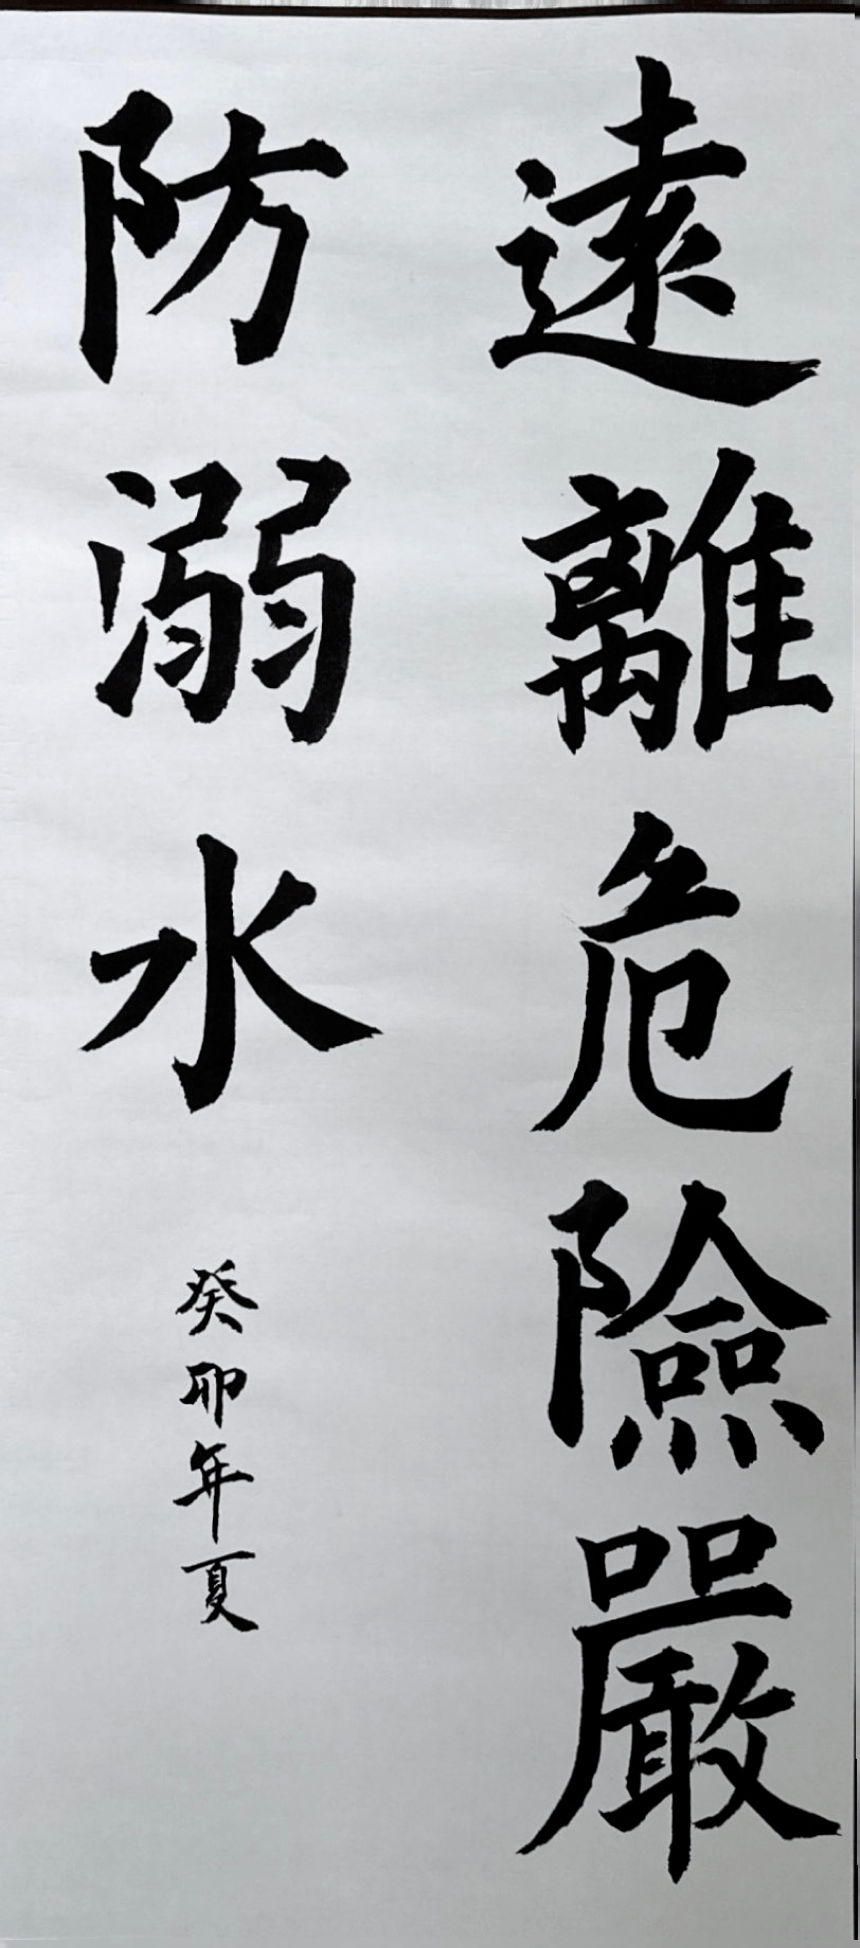 遠離危險嚴
防溺水
癸卯年夏